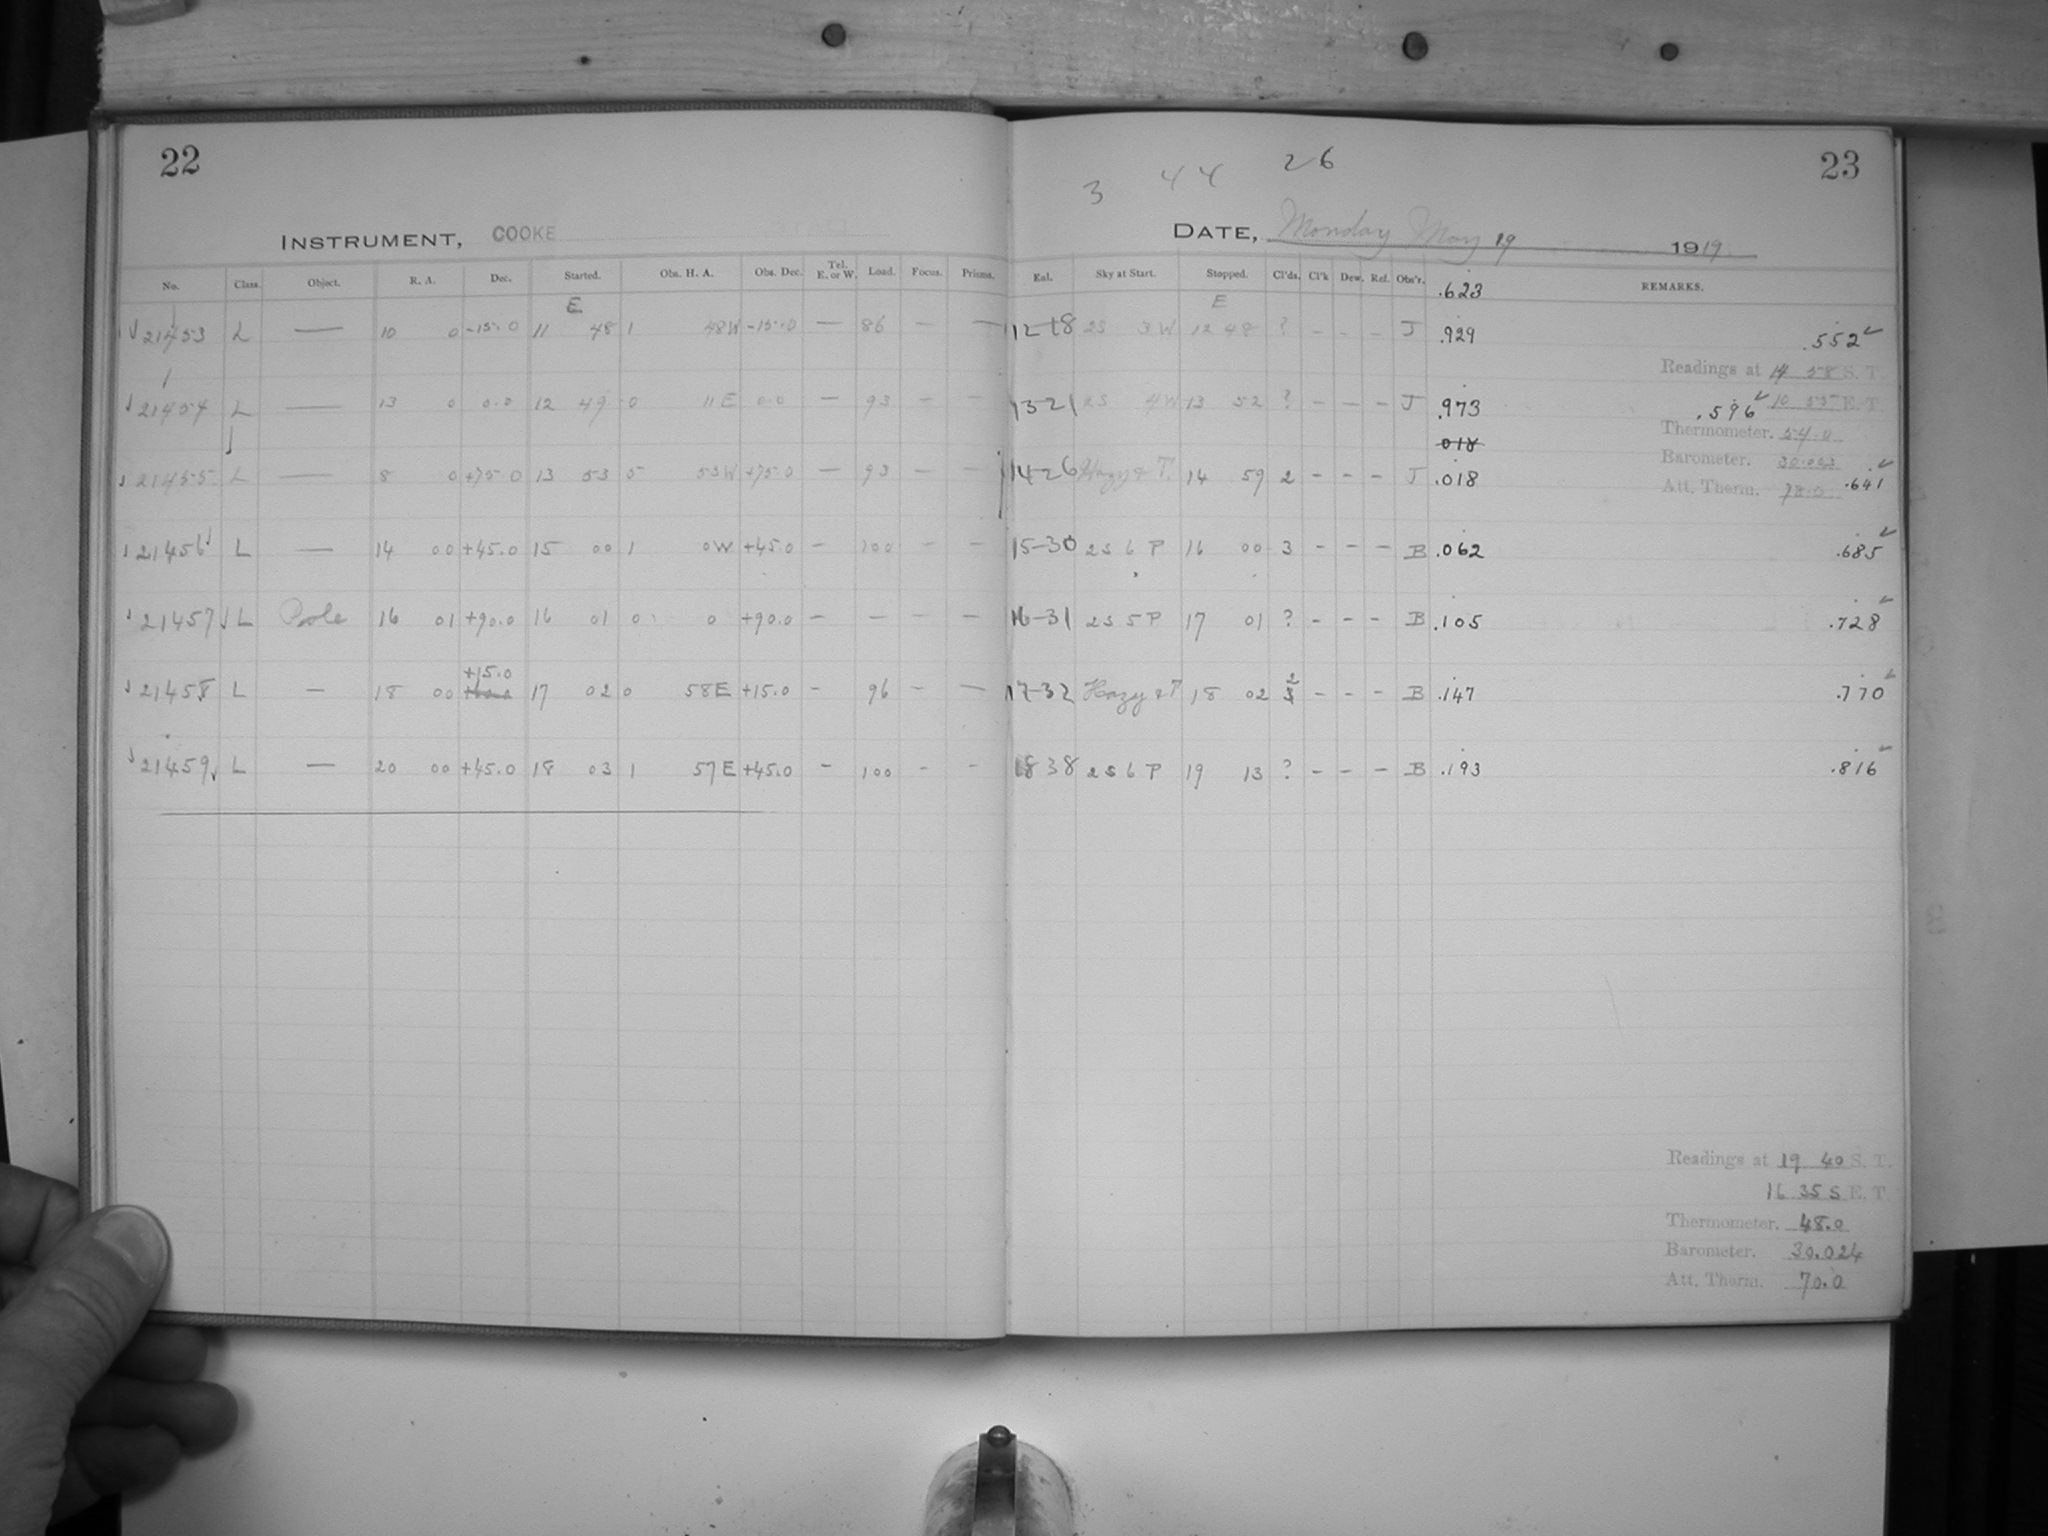 22
INSTRUMENT, COOKE
No. Class. Object. R. A. Dec. Started. Obs. H. A. Obs. Dec. Tel. E. or W. Load. Focus. Prisms.
E
21453 L — 10 0 -15.0 11 48 1 48W -15.0 — 86 – —
21454 L — 13 0 0.0 12 49 0 11E 0.0 — 93 – –
21455 L — 8 0 +75.0 13 53 5 53W +75.0 — 93 – –
21456 L — 14 00 +45.0 15 00 1 0W +45.0 – 100 – –
21457 L Pole 16 01 +90.0 16 01 0 0 +90.0 – – – –
+15.0
21458 L – 18 00 17 02 0 58E +15.0 – 96 – —
21459 L — 20 00 +45.0 18 03 1 57E +45.0 – 100 – –
3 44 26
23
DATE, Monday May 19 1919
Eal. Sky at Start. Stopped. Cl'ds. Cl'k Dew. Rel. Obs'r. REMARKS.
.623
E
12-18 2S 3W 12 48 ? – – – J .929 .552
Readings at 14 58 S. T.
13-21 2S 4W 13 52 ? – – – J .973 .596 E. T.
018
Thermometer. 54.0
Barometer.
14-26 Hazy & T. 14 59 2 – – – J .018 .641
Att. Therm. 78.0
15-30 2S 6 P 16 00 3 – – – B .062 .685
16-31 2S 5 P 17 01 ? – – – B .105 .728
17-32 Hazy & T 18 02 2 – – – B .147 .770
18 38 2S 6 P 19 13 ? – – – B .193 .816
Readings at 19 40 S. T.
16 35 S E. T.
Thermometer. 48.0
Barometer. 30.024
Att. Therm. 70.0